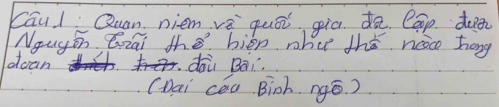 Câu 1: Quan niệm về quốc gia độc lập được
Nguyễn Trãi thể hiện như thế nào trong
đoạn đầu Bài.
(Đại cáo Bình ngô.)